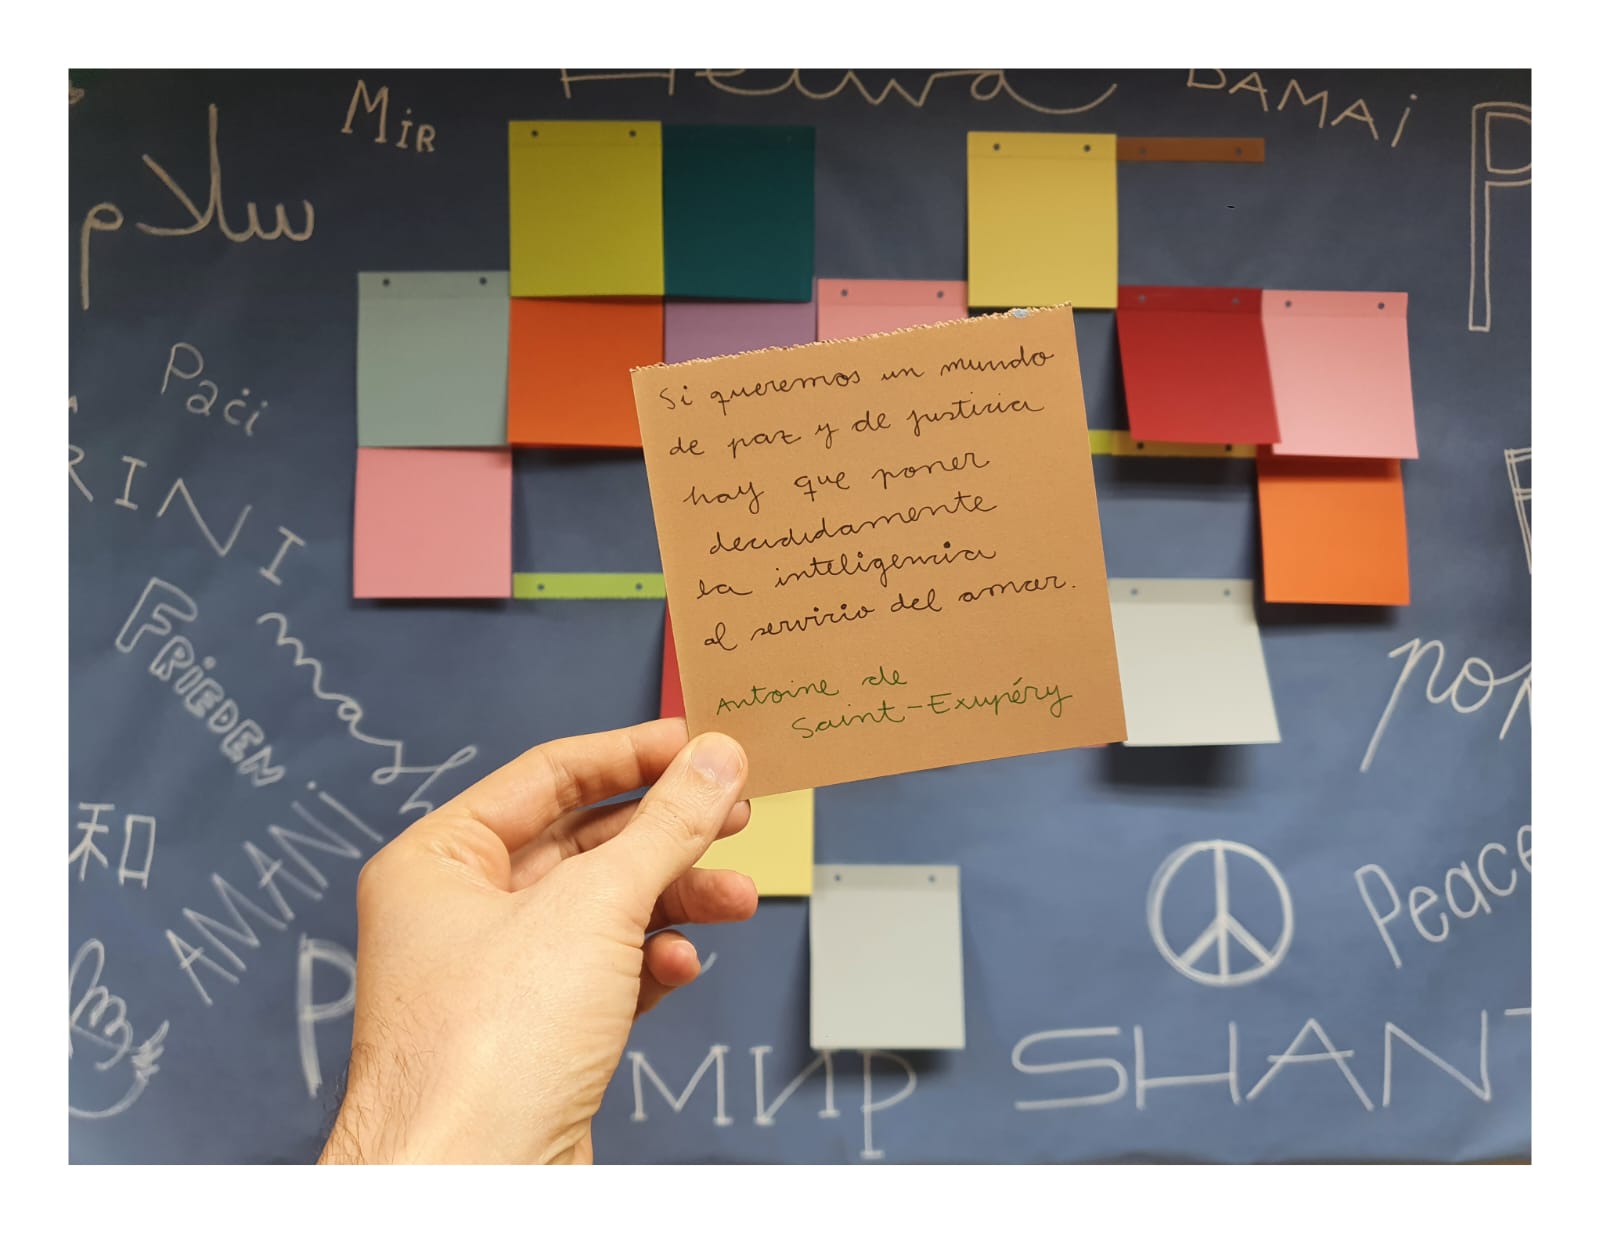 Heiwa
DAMAi
MiR
سلام
Paci
RINI
mash
FRiEDEN
和
AMANi
Si queremos un mundo
de paz y de justicia
hay que poner
decididamente
la inteligencia
al servicio del amor.
Antoine de
Saint-Exupéry
Peace
МИР
SHANT